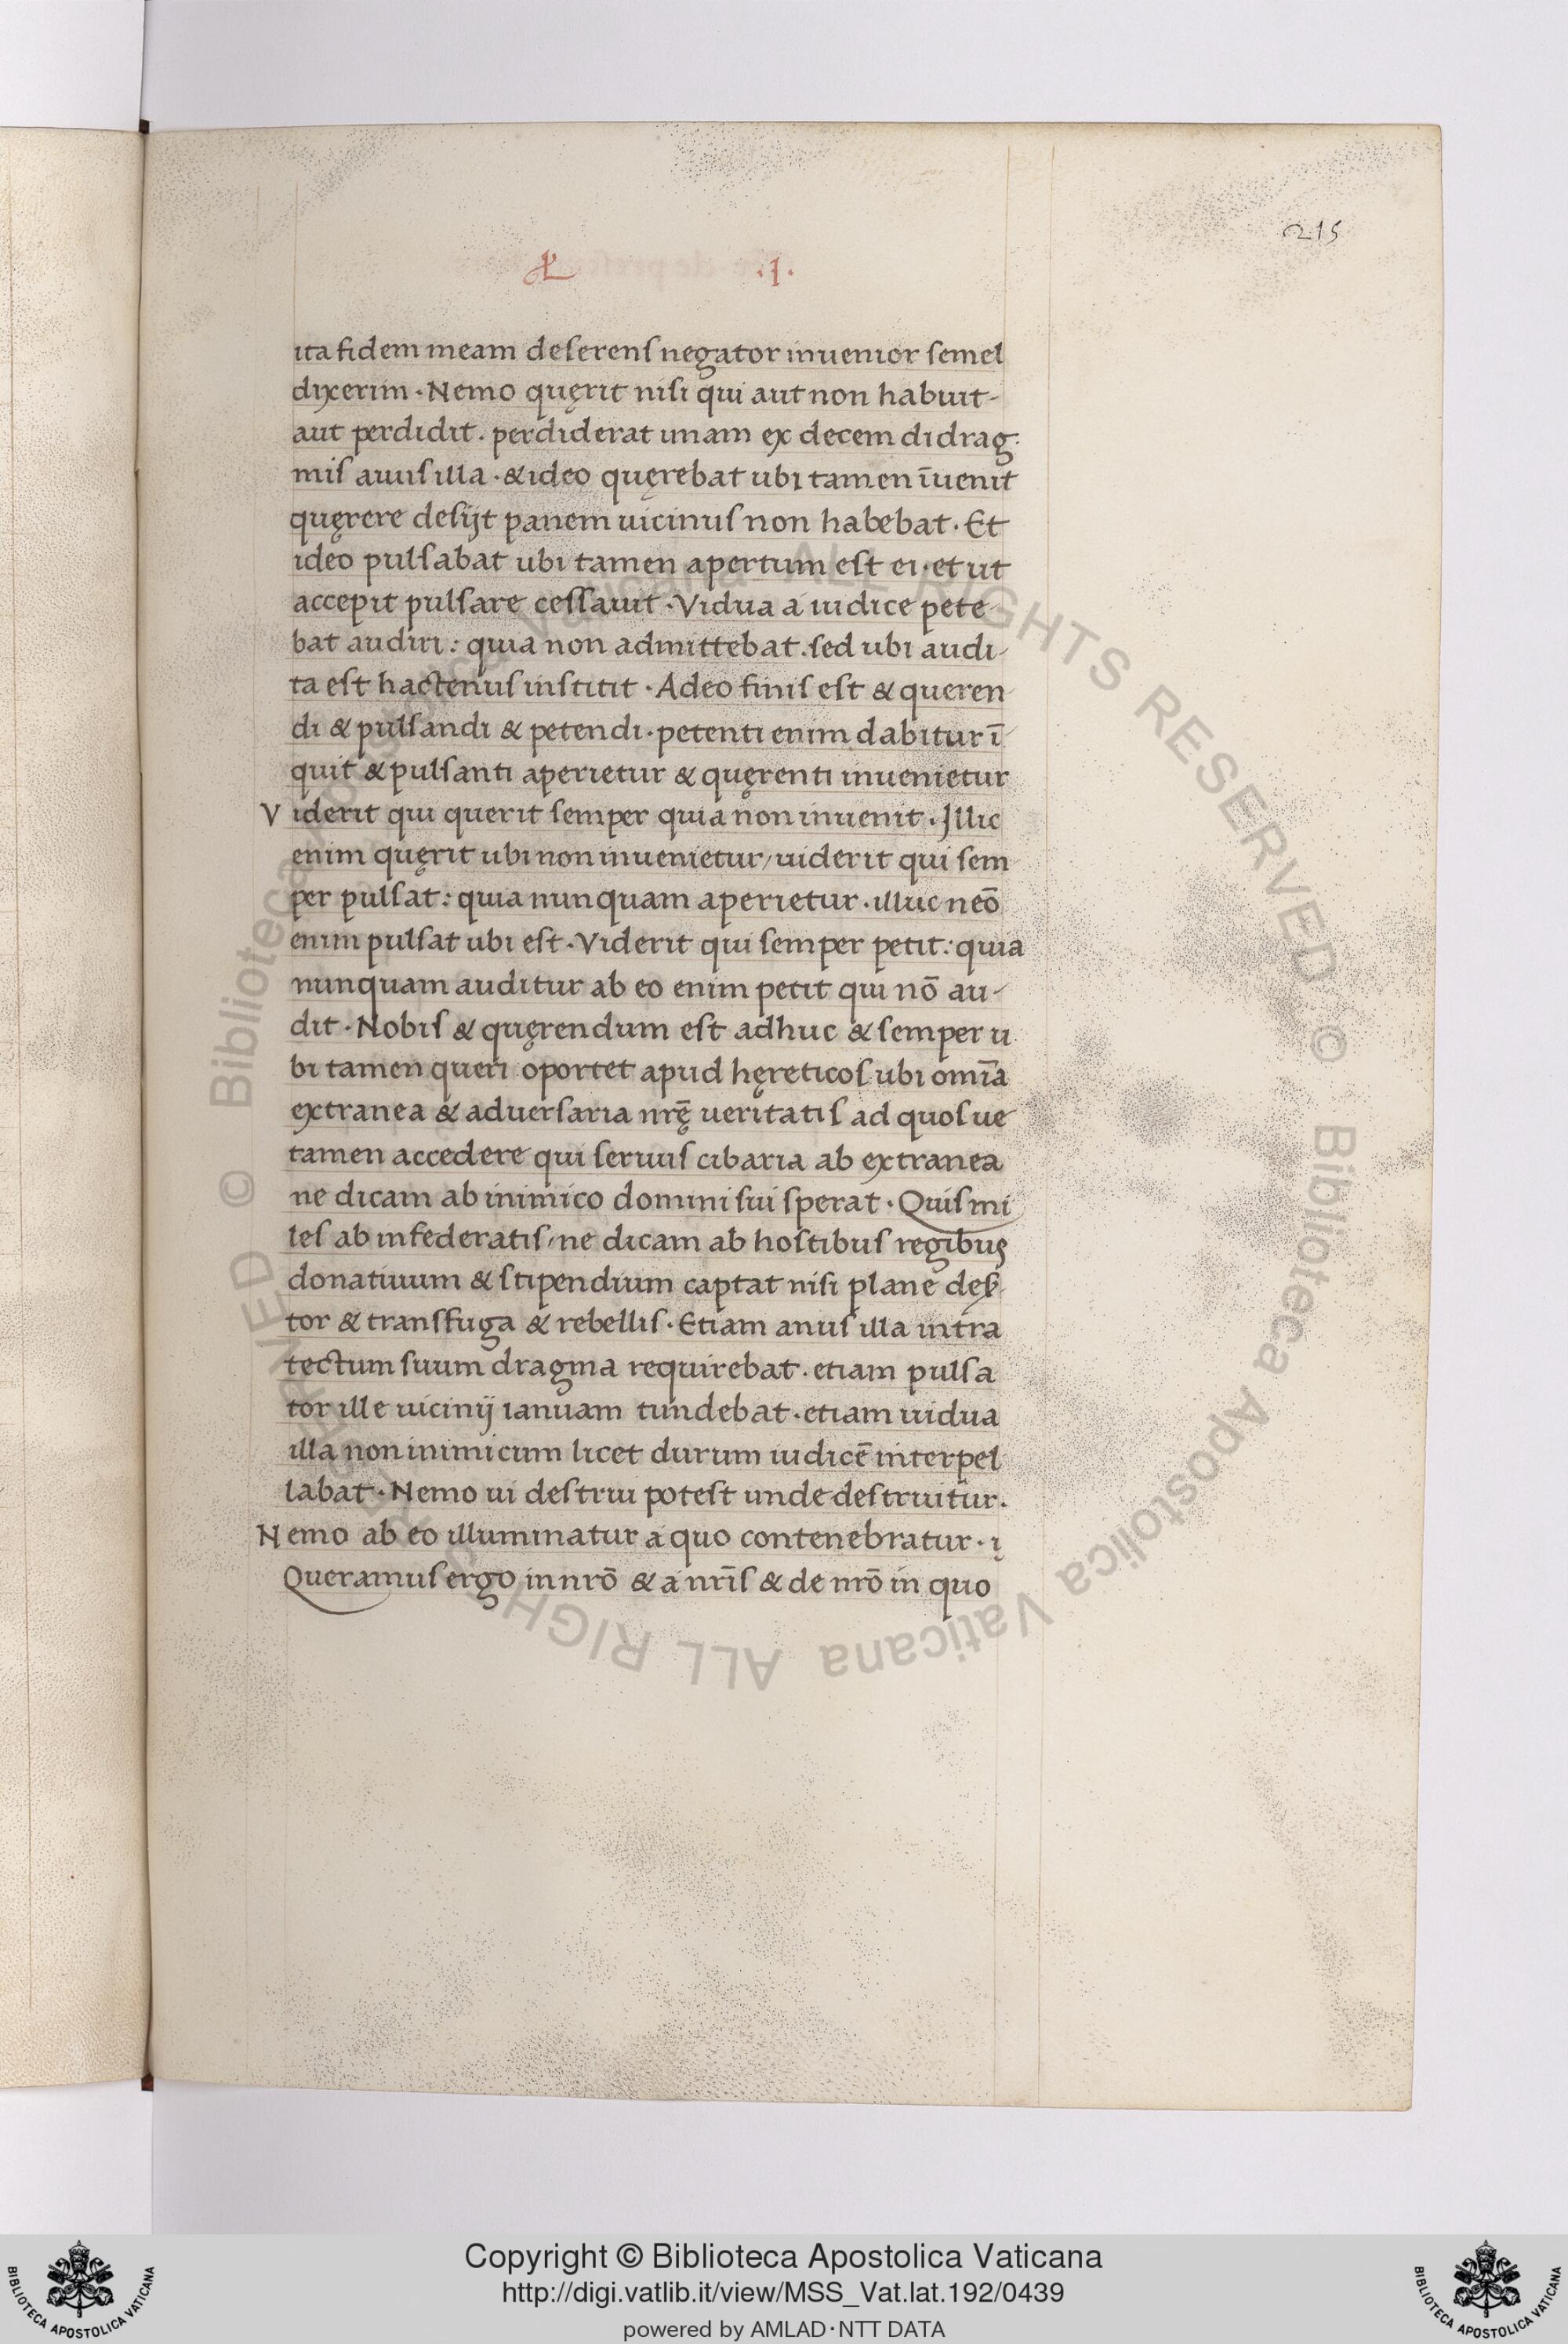 215
.I.
ita fidem meam deserens negator inuenior semel
dixerim. Nemo quęrit nisi qui aut non habuit-
aut perdidit. perdiderat unam ex decem didrag
mis auus illa. & ideo quęrebat ubi tamen īuenit
quęrere desijt panem uicinus non habebat. Et
ideo pulsabat ubi tamen apertum est ei. et ut
accepit pulsare cessauit. Vidua a iudice pete
bat audiri: quia non admittebat. sed ubi audi-
ta est hactenus institit. Adeo finis est & queren
di & pulsandi & petendi. petenti enim dabitur ī
quit & pulsanti aperietur & quęrenti inuenietur
Viderit qui querit semper quia non inuenit. Illic
enim quęrit ubi non inuenietur/ uiderit qui sem
per pulsat: quia nunquam aperietur. illuc neō
enim pulsat ubi est. Viderit qui semper petit: quia
nunquam auditur ab eo enim petit qui nō au-
dit. Nobis & quęrendum est adhuc & semper u
bi tamen queri oportet apud hęreticos ubi omīa
extranea & aduersaria nrę̄ ueritatis ad quos ue
tamen accedere qui seruus cibaria ab extranea
ne dicam ab inimico domini sui sperat. Quis mi
les ab infederatis/ ne dicam ab hostibus regibus
donatiuum & stipendium captat nisi plane des
tor & transfuga & rebellis. Etiam anus illa intra
tectum suum dragma requirebat. etiam pulsa
tor ille uicinij ianuam tundebat. etiam uidua
illa non inimicum licet durum iudicē interpel
labat. Nemo ui destrui potest unde destruitur.
Nemo ab eo illuminatur a quo contenebratur. į
Queramus ergo in nrō & a nrīs & de nrō in quo
© Biblioteca Apostolica Vaticana ALL RIGHTS RESERVED © Biblioteca Apostolica Vaticana ALL RIGHTS RESERVED
Copyright © Biblioteca Apostolica Vaticana
http://digi.vatlib.it/view/MSS_Vat.lat.192/0439
powered by AMLAD·NTT DATA
BIBLIOTECA APOSTOLICA VATICANA
BIBLIOTECA APOSTOLICA VATICANA